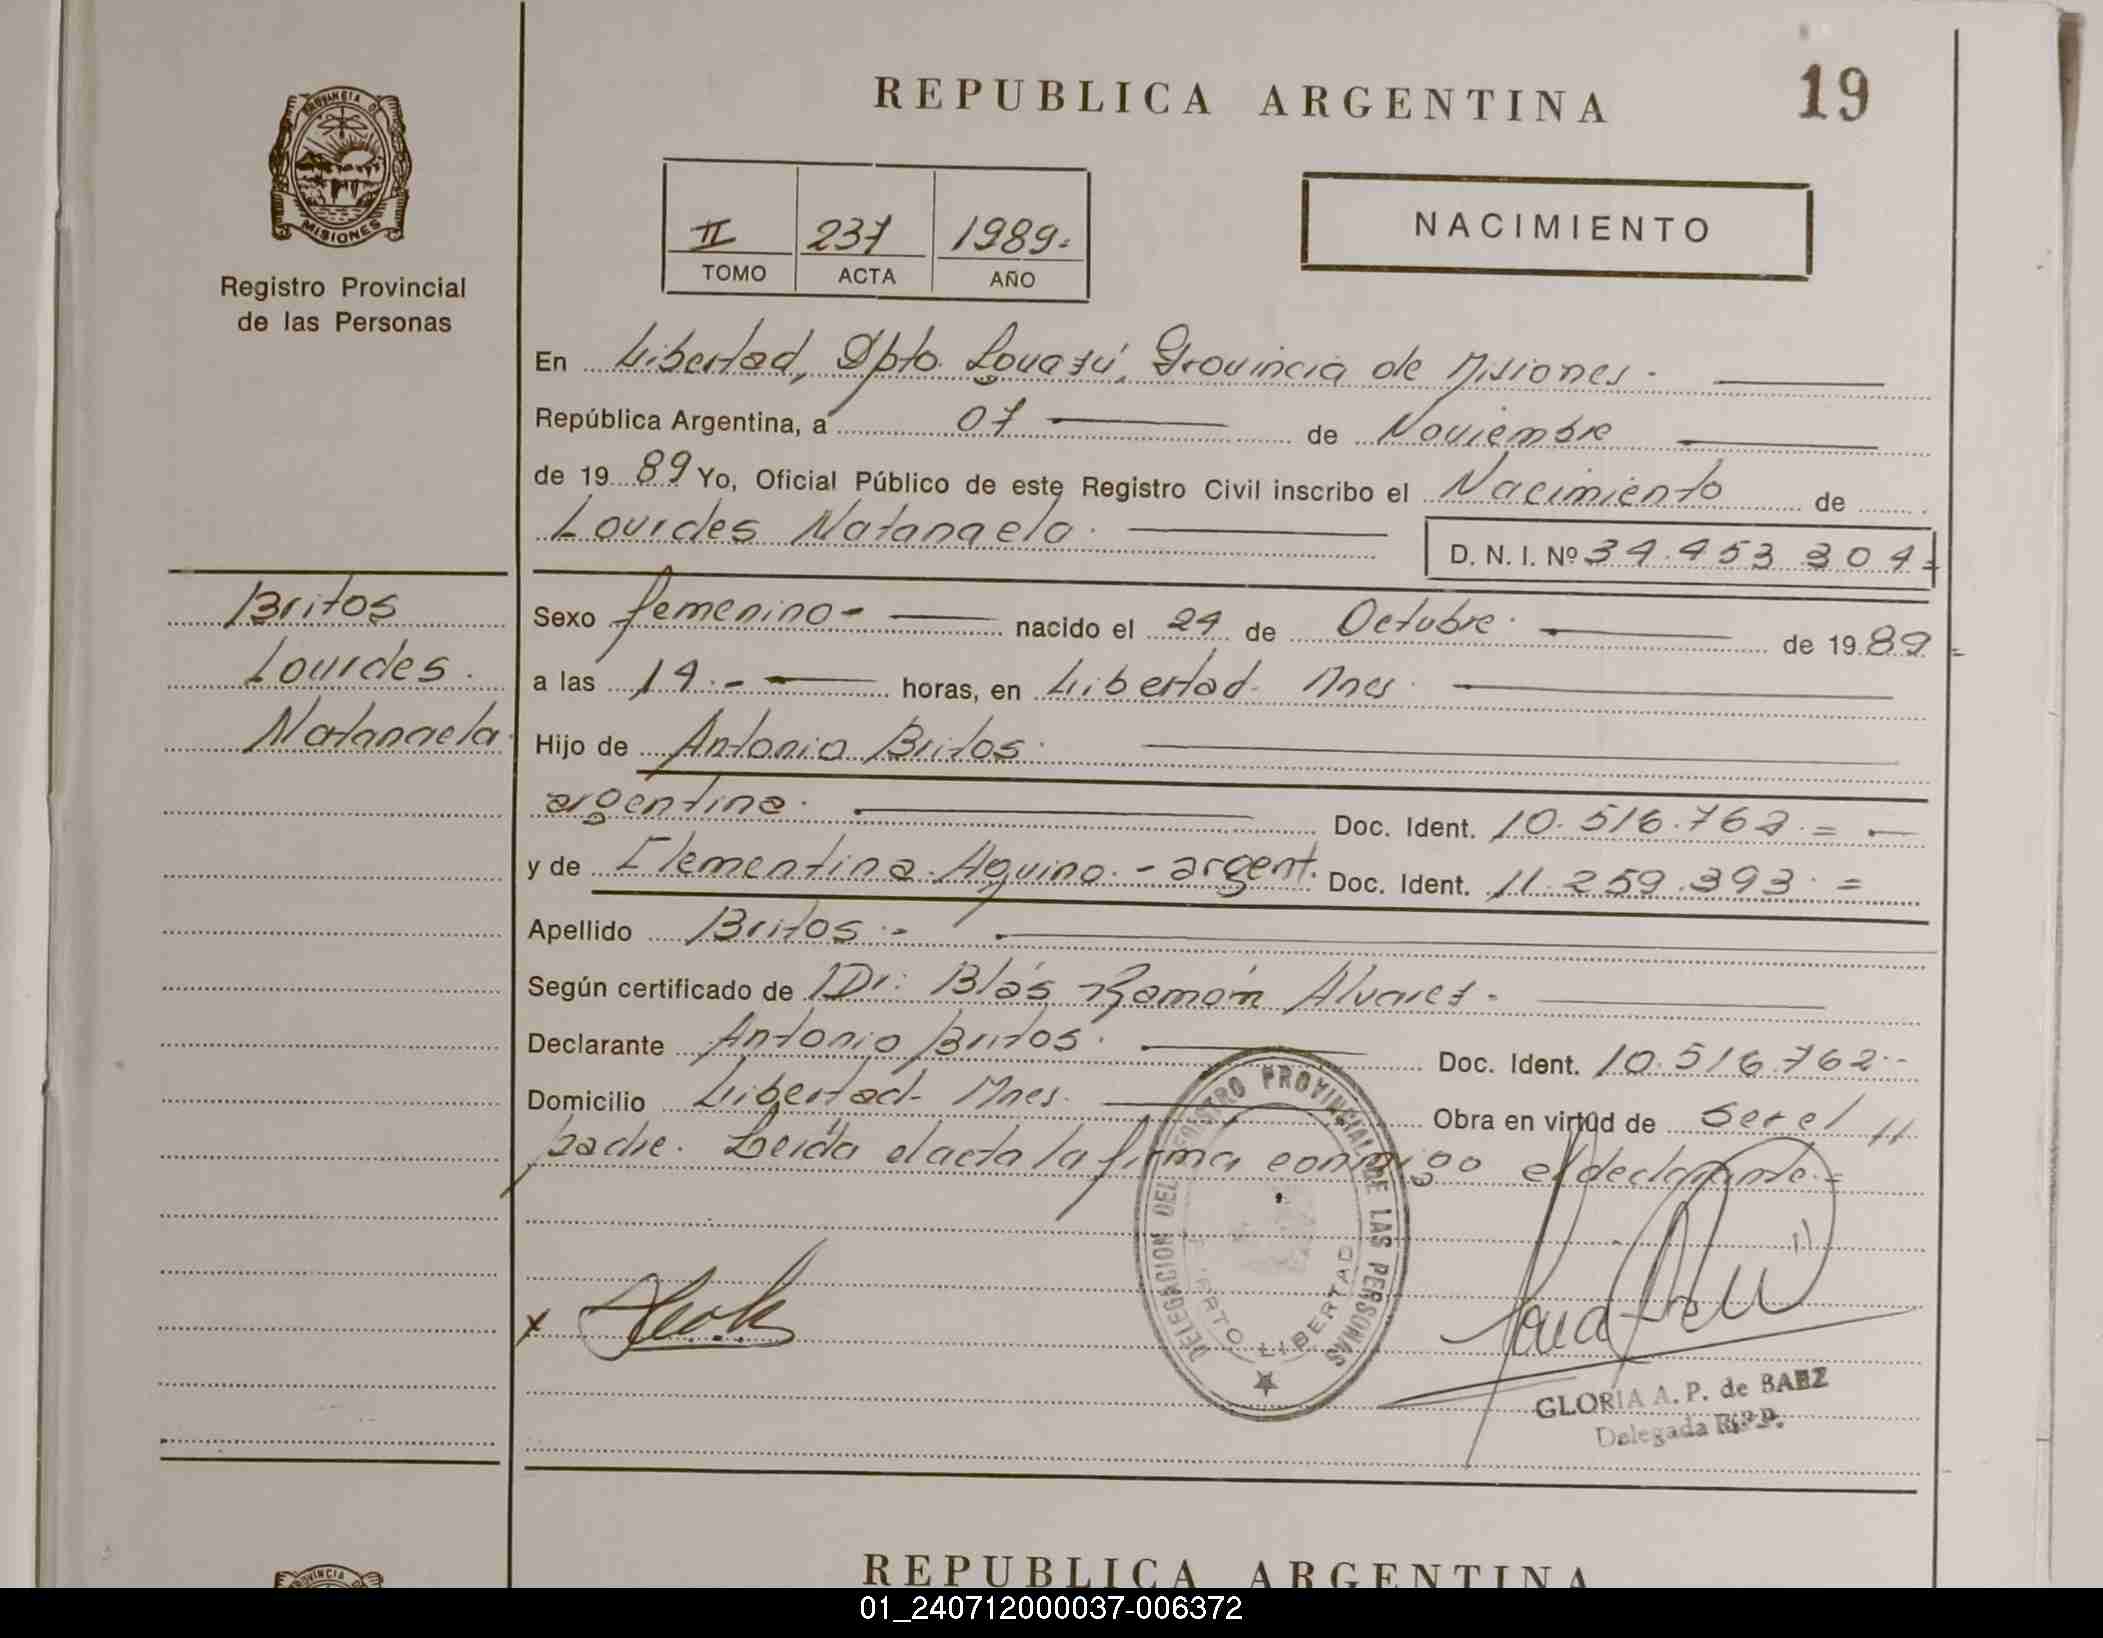 REPUBLICA ARGENTINA
19
PROVINCIA DE
MISIONES
Registro Provincial
de las Personas
II 237 1989.
TOMO ACTA AÑO
NACIMIENTO
En Libertad, Dpto. Iguazú, Provincia de Misiones.
República Argentina, a 07 de Noviembre
de 1989 Yo, Oficial Público de este Registro Civil inscribo el Nacimiento de
Lourdes Natanaela.
D. N. I. Nº 34.453.304=
Britos
Lourdes.
Natanaela.
Sexo femenino- nacido el 24 de Octubre. de 1989=
a las 14.- horas, en Libertad- Mnes.
Hijo de Antonio Britos.
argentina. Doc. Ident. 10.516.762.=
y de Clementina Aquino.- argent. Doc. Ident. 11.259.393.=
Apellido Britos.-
Según certificado de Dr: Blás Ramón Alvarez.
Declarante Antonio Britos. Doc. Ident. 10.516.762.-
Domicilio Libertad- Mnes. Obra en virtud de ser el //
padre. Leída el acta la firma conmigo el declarante.=
DELEGACION DEL REGISTRO PROVINCIAL DE LAS PERSONAS
PTO. LIBERTAD
x
GLORIA A. P. de BAEZ
Delegada R.P.P.
REPUBLICA ARGENTINA
01_240712000037-006372